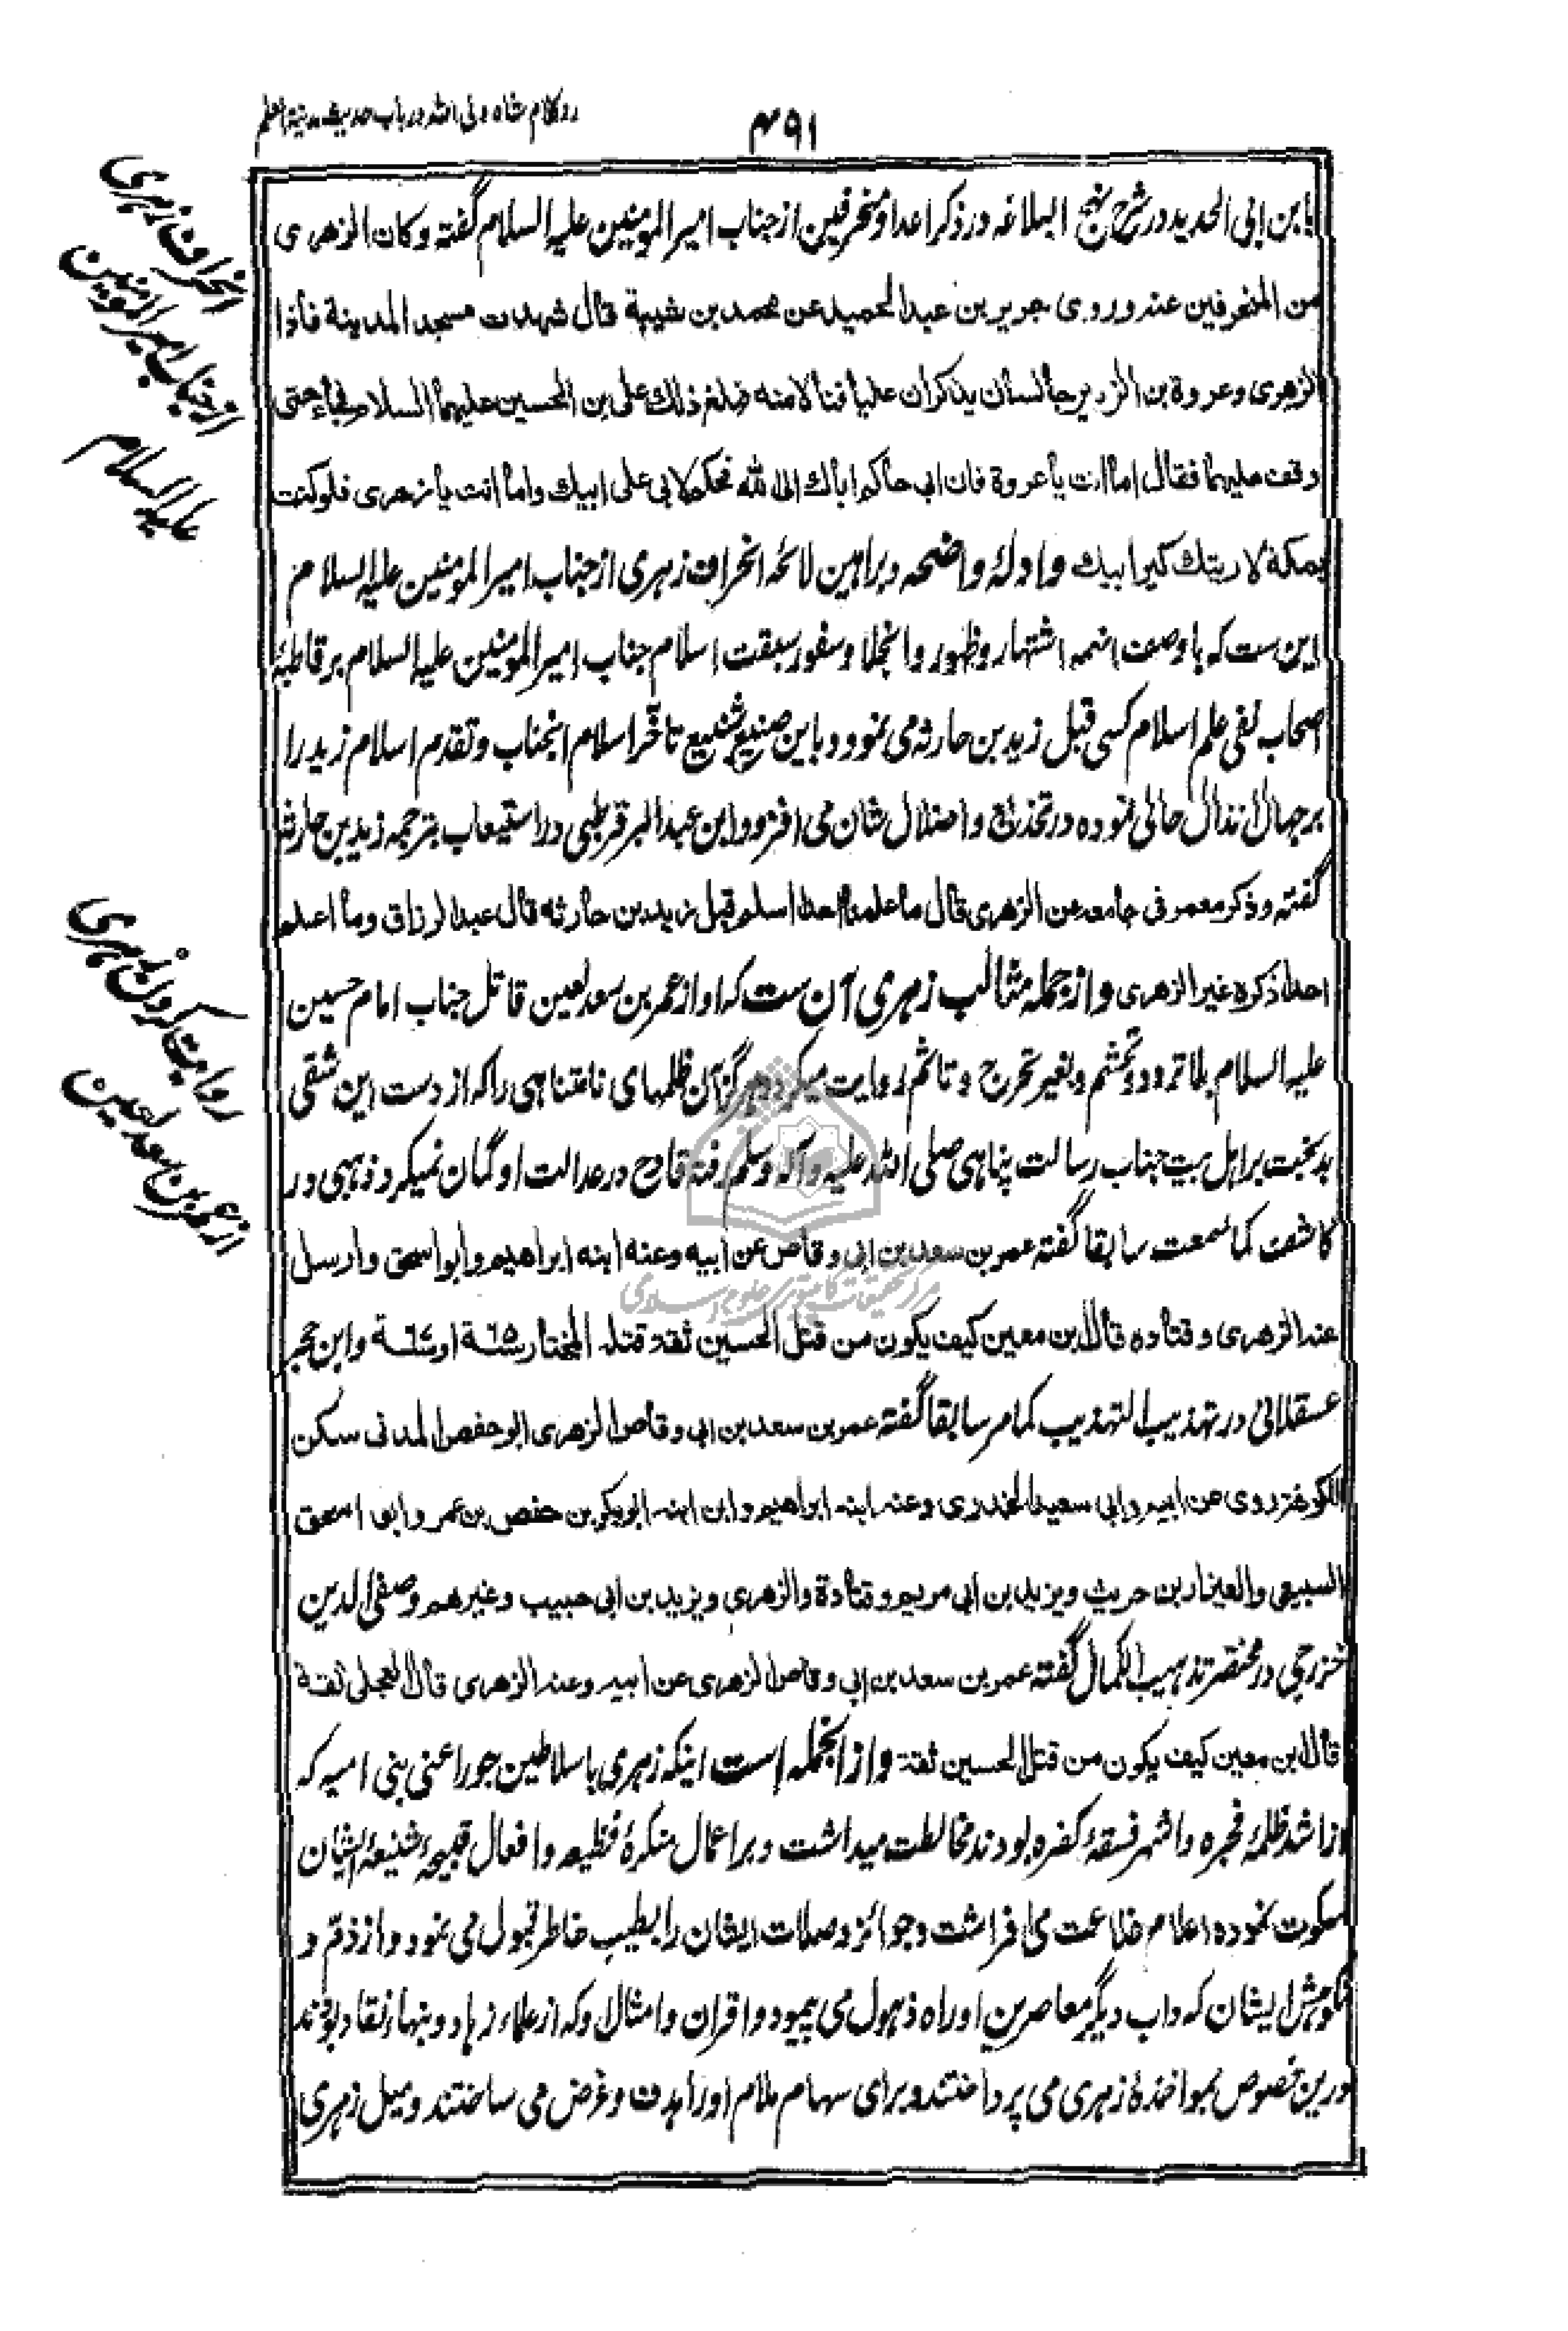 رد کلام شاه ولی الله در باب حدیث مدینة العلم
۴۹۱
انحراف زهری
از جناب امیر المومنین
علیه السلام
ابن ابی الحدید در شرح نهج البلاغه در ذکر اعدا و منحرفین از جناب امیر المومنین علیه السلام گفته و کان الزهری
من المنحرفین عنه و روی جریر بن عبد الحمید عن محمد بن شیبة قال شهدت مسجد المدینة فاذا
الزهری و عروة بن الزبیر جالسان یذکران علیا فنالا منه فبلغ ذلك علی بن الحسین علیهما السلام فجاء حتی
وقف علیهما فقال اما انت یا عروة فان ابی حاکم اباك الی الله فحکم لابی علی ابیك و اما انت یا زهری فلو کنت
بمکة لاریتك کیر ابیك و ادلهٔ واضحه و براهین لائحه انحراف زهری از جناب امیر المومنین علیه السلام
این ست که با وصف انهمه اشتهار و ظهور و انجلا و سفور سبقت اسلام جناب امیر المومنین علیه السلام بر قاطبهٔ
اصحاب نفی علم اسلام کسی قبل زید بن حارثه می نمود و باین صنیع شنیع تاخّر اسلام انجناب و تقدم اسلام زید را
بر جهال انذال حالی نموده در تخدیع و اضلال شان می افزود و ابن عبد البر قرطبی در استیعاب بترجمه زید بن حارثه
گفته و ذکر معمر فی جامعه عن الزهری قال ما علمنا احدا اسلم قبل زید بن حارثه قال عبد الرزاق و ما اعلم
احدا ذکره غیر الزهری و از جمله مثالب زهری آن ست که او از عمر بن سعد لعین قاتل جناب امام حسین
علیه السلام بلا تردد و تجشم و بغیر تحرج و تاثم روایت میکرد و هرگز آن ظلمهای نامتناهی را که از دست این شقی
بدبخت بر اهل بیت جناب رسالت پناهی صلی الله علیه و آله و سلم رفته قادح در عدالت او گمان نمیکرد ذهبی در
کاشف کما سمعت سابقا گفته عمر بن سعد بن ابی وقاص عن ابیه و عنه ابنه ابراهیم و ابو اسحق و ارسل
عنه الزهری و قتاده قال ابن معین کیف یکون من قتل الحسین ثقه قتله المختار سنة ۶۵ او سنة ۶۷ و ابن حجر
عسقلانی در تهذیب التهذیب کما مر سابقا گفته عمر بن سعد بن ابی وقاص الزهری ابو حفص المدنی سکن
الکوفة روی عن ابیه و ابی سعید الخدری و عنه ابنه ابراهیم و ابن ابنه ابوبکر بن حفص بن عمر و ابو اسحق
السبیعی و العیزار بن حریث و یزید بن ابی مریم و قتادة و الزهری و یزید بن ابی حبیب و غیرهم و صفی الدین
خزرجی در مختصر تذهیب الکمال گفته عمر بن سعد بن ابی وقاص الزهری عن ابیه و عنه الزهری قال العجلی ثقة
قال ابن معین کیف یکون من قتل الحسین ثقة و از انجمله است اینکه زهری با سلاطین جور اعنی بنی امیه که
از اشد ظلمهٔ فجره و اشهر فسقهٔ کفره بودند مخالطت میداشت و بر اعمال منکرهٔ فظیعه و افعال قبیحهٔ شنیعهٔ ایشان
سکوت نموده اعلام خلاعت می افراشت و جوائز و صلات ایشان را بطیب خاطر قبول می نمود و از ذمّ و
نکوهش ایشان که داب دیگر معاصرین او راه ذهول می پیمود و اقران و امثال او که از علماء زهاد و نبهاء نقاد بودند
درین خصوص بمواخذهٔ زهری می پرداختند و برای سهام ملام او را هدف و غرض می ساختند و میل زهری
روایت کردن زهری
از عمر بن سعد لعین
مرکز تحقیقات کامپیوتری علوم اسلامی